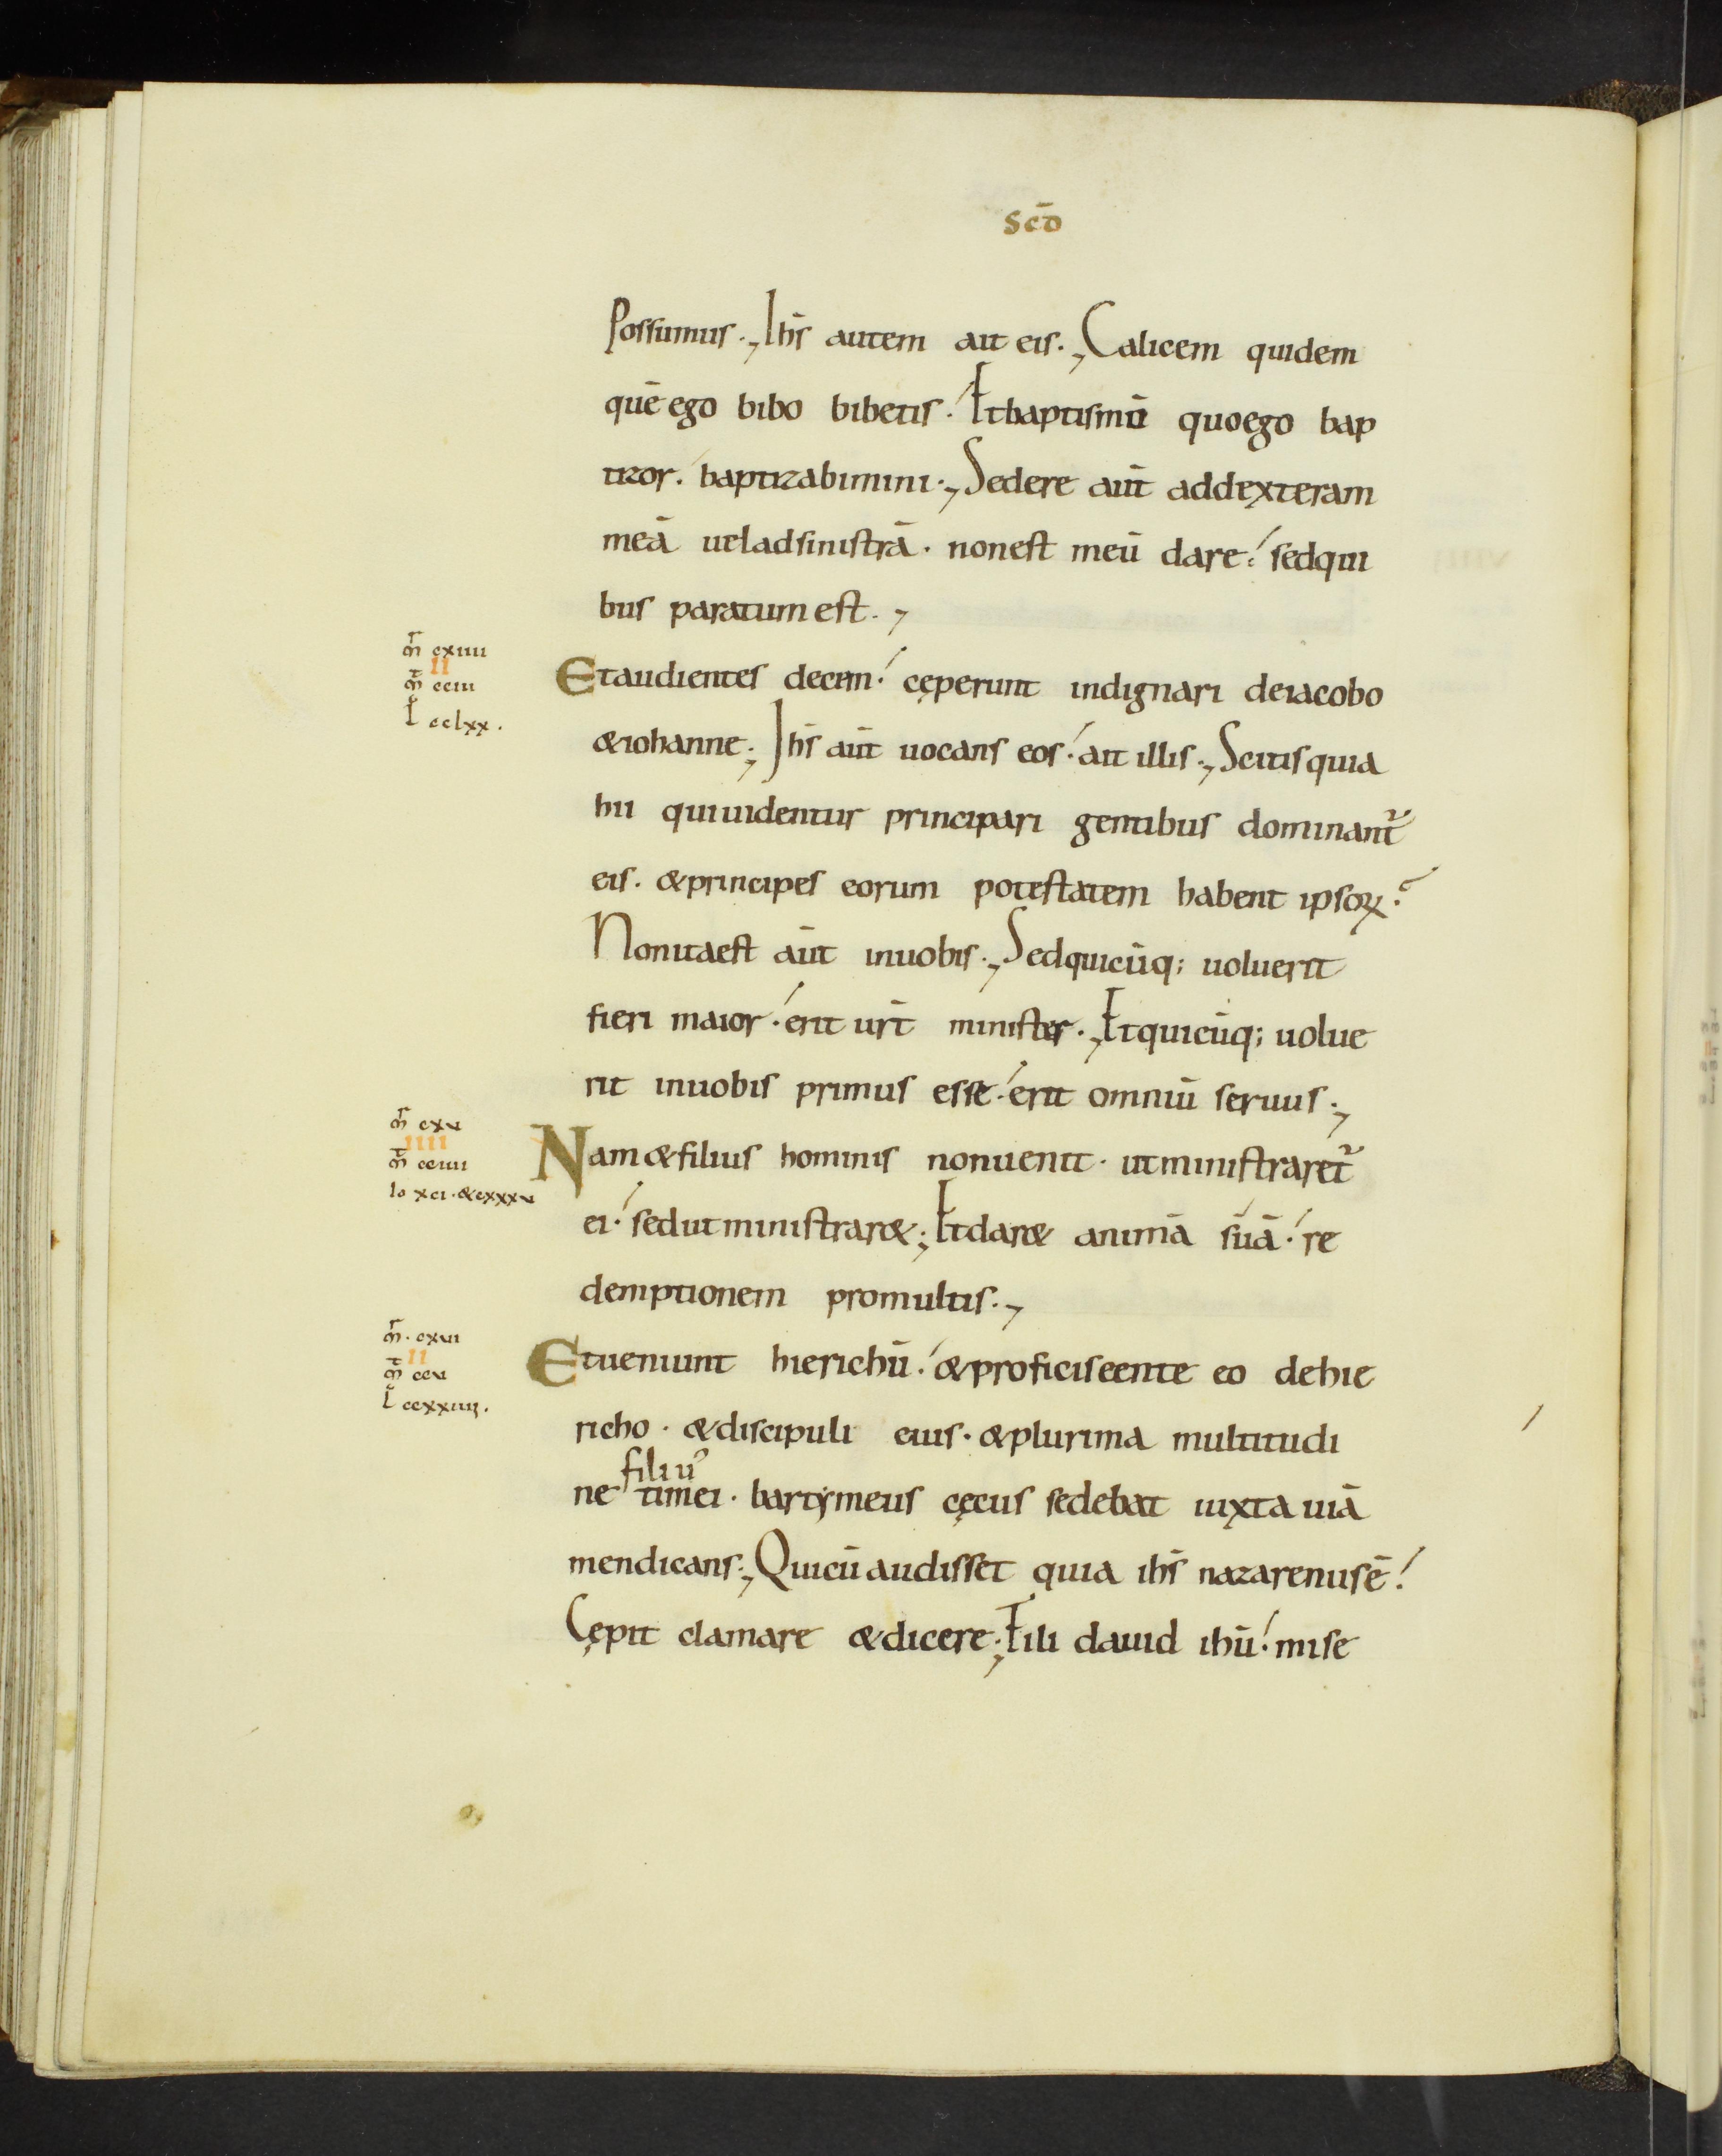 SCD̄
Possumus·, Ihs̄ autem ait eis·, Calicem quidem
quē ego bibo bibetis· Et baptismū quo ego bap
tizor· baptizabimini·, Sedere aūt ad dexteram
meā uel ad sinistrā· non est meū dare· sed qui
bus paratum est·,
m̄r cxiiii
II
m̄t cciii
L cclxx·
Et audientes decem· cęperunt indignari de iacobo
& iohanne·, Ihs̄ aūt uocans eos· ait illis·, Scitis quia
hii qui uidentur principari gentibus dominant᷑
eis· & principes eorum potestatem habent ipsoꝝ·
Non ita est aūt in uobis·, Sed quicūq; uoluerit
fieri maior· erit ur̄t minister·, Et quicūq; uolue
rit in uobis primus esse· erit omniū seruus·,
m̄r cxv
IIII
m̄t cciiii
Io xci·&cxxxv
Nam & filius hominis non uenit· ut ministraret᷑
ei· sed ut ministrar&·, Et dar& animā sūā· re
demptionem pro multis·,
m̄r· cxvi
II
m̄t ccv
L ccxxiiii·
Et ueniunt hierichū· & proficiscente eo de hie
richo· & discipuli eius· & plurima multitudi
filiuˀ
ne timei· bartẏmeus cęcus sedebat iuxta uiā
mendicans·, Qui cū audisset quia ihs̄ nazarenus ē·
Cępit clamare & dicere·, Fili dauid ihū· mise